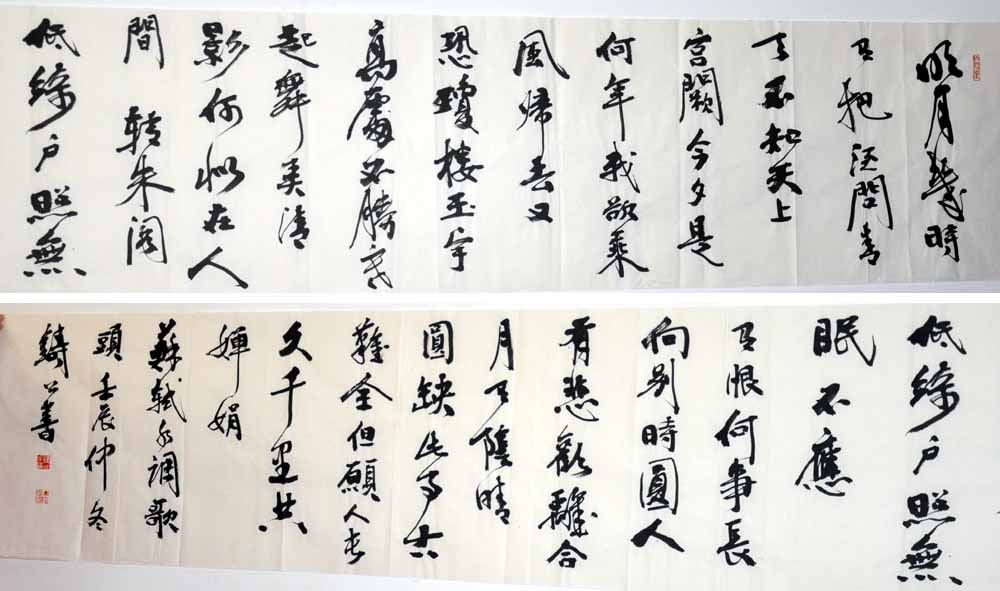 明月幾時
有把酒問青
天不知天上
宮闕今夕是
何年我欲乘
風歸去又
恐瓊樓玉宇
高處不勝寒
起舞弄清
影何似在人
間轉朱閣
低綺戶照無
低綺戶照無
眠不應
有恨何事長
向別時圓人
有悲歡離合
月有陰晴
圓缺此事古
難全但願人長
久千里共
嬋娟
蘇軾水調歌
頭壬辰仲冬
鑄公書